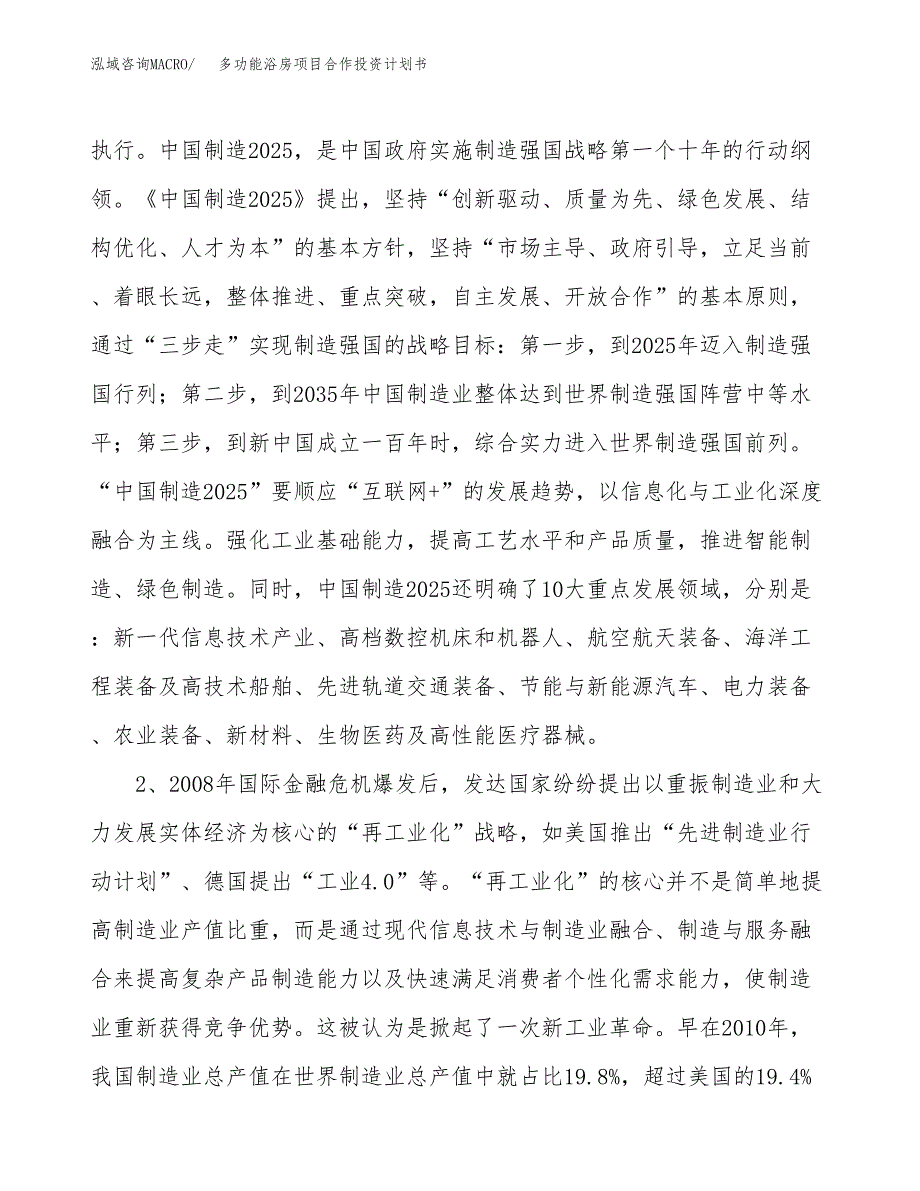 泓域咨询MACRO/ 多功能浴房项目合作投资计划书
执行。中国制造2025，是中国政府实施制造强国战略第一个十年的行动纲
领。《中国制造2025》提出，坚持“创新驱动、质量为先、绿色发展、结
构优化、人才为本”的基本方针，坚持“市场主导、政府引导，立足当前
、着眼长远，整体推进、重点突破，自主发展、开放合作”的基本原则，
通过“三步走”实现制造强国的战略目标：第一步，到2025年迈入制造强
国行列；第二步，到2035年中国制造业整体达到世界制造强国阵营中等水
平；第三步，到新中国成立一百年时，综合实力进入世界制造强国前列。
“中国制造2025”要顺应“互联网+”的发展趋势，以信息化与工业化深度
融合为主线。强化工业基础能力，提高工艺水平和产品质量，推进智能制
造、绿色制造。同时，中国制造2025还明确了10大重点发展领域，分别是
：新一代信息技术产业、高档数控机床和机器人、航空航天装备、海洋工
程装备及高技术船舶、先进轨道交通装备、节能与新能源汽车、电力装备
、农业装备、新材料、生物医药及高性能医疗器械。
2、2008年国际金融危机爆发后，发达国家纷纷提出以重振制造业和大
力发展实体经济为核心的“再工业化”战略，如美国推出“先进制造业行
动计划”、德国提出“工业4.0”等。“再工业化”的核心并不是简单地提
高制造业产值比重，而是通过现代信息技术与制造业融合、制造与服务融
合来提高复杂产品制造能力以及快速满足消费者个性化需求能力，使制造
业重新获得竞争优势。这被认为是掀起了一次新工业革命。早在2010年，
我国制造业总产值在世界制造业总产值中就占比19.8%，超过美国的19.4%